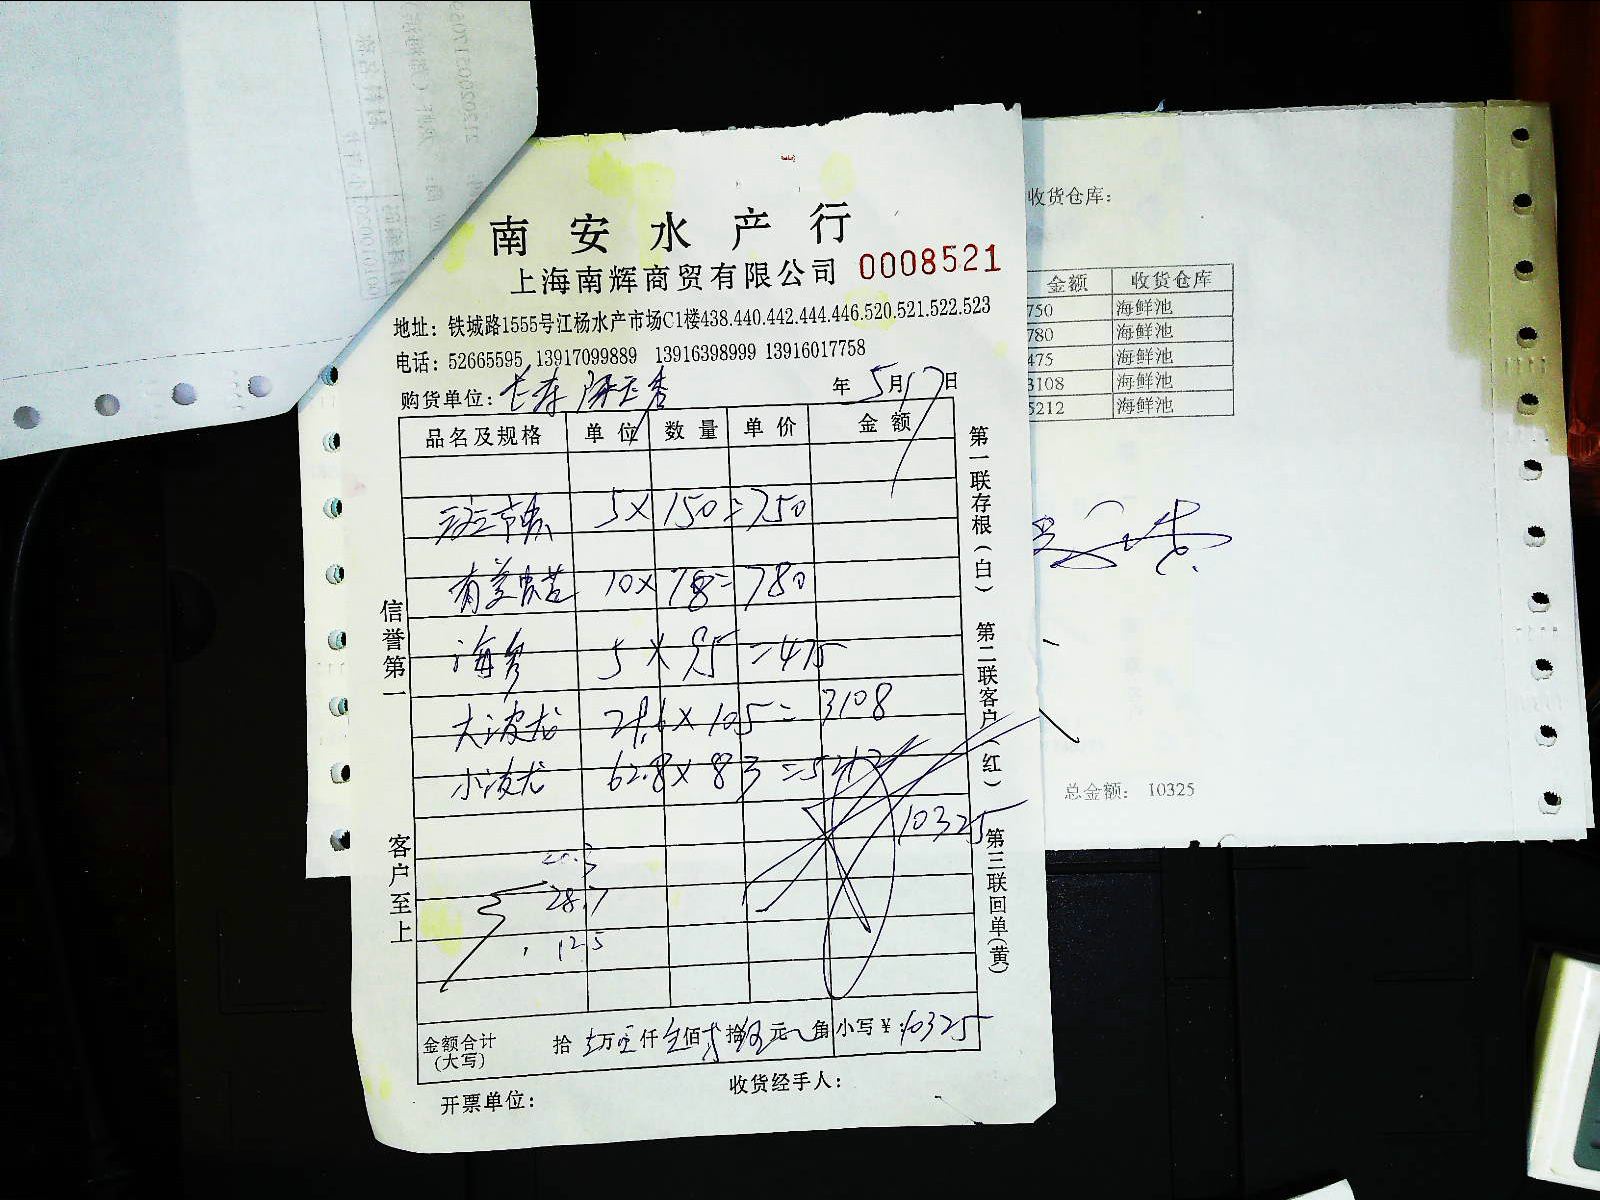 南安水产行
上海南辉商贸有限公司 0008521
地址：铁城路1555号江杨水产市场C1楼438.440.442.444.446.520.521.522.523
电话：52665595 13917099889 13916398999 13916017758
购货单位： 年5月17日
品名及规格 单位 数量 单价 金额
5×150=750
10×78=780
海参 5×95=475
大波龙 ×105=3108
小波龙 62.8×83=5212
10325
28.7
12.5
金额合计(大写) 拾 万 仟 佰 拾 元 角 小写￥:10325
开票单位：
收货经手人：
信誉第一
客户至上
第一联存根(白) 第二联客户(红) 第三联回单(黄)
收货仓库：
金额 收货仓库
750 海鲜池
780 海鲜池
475 海鲜池
3108 海鲜池
5212 海鲜池
总金额： 10325